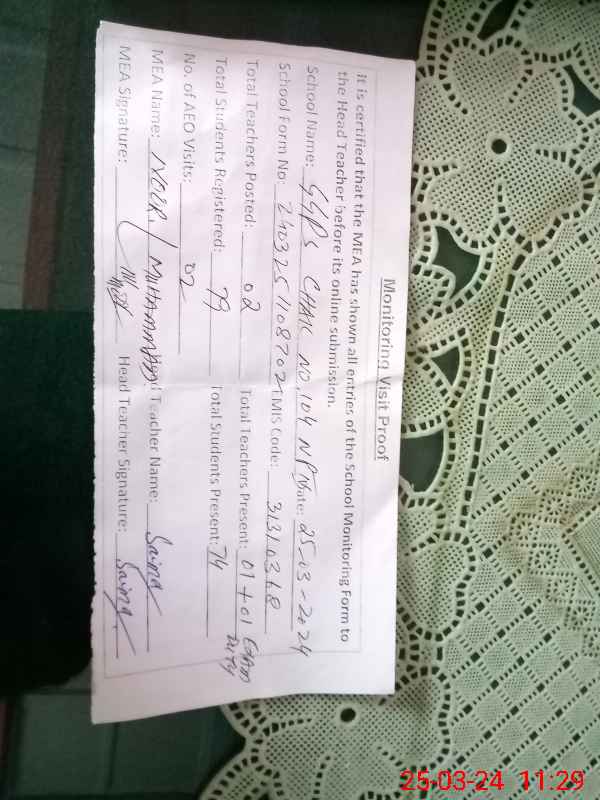 Monitoring Visit Proof
It is certified that the MEA has shown all entries of the School Monitoring Form to
the Head Teacher before its online submission.
School Name: GGPS CHAK NO.104 NP Date: 25-03-2024
School Form No: 2403251108702 EMIS Code: 31310368
Total Teachers Posted: 02 Total Teachers Present: 01+01 EXAM DUTY
Total Students Registered: 79 Total Students Present: 74
No. of AEO Visits: 02
MEA Name: NOOR MUHAMMAD Head Teacher Name: Saima
MEA Signature: Head Teacher Signature: Saima
25-03-24 11:29